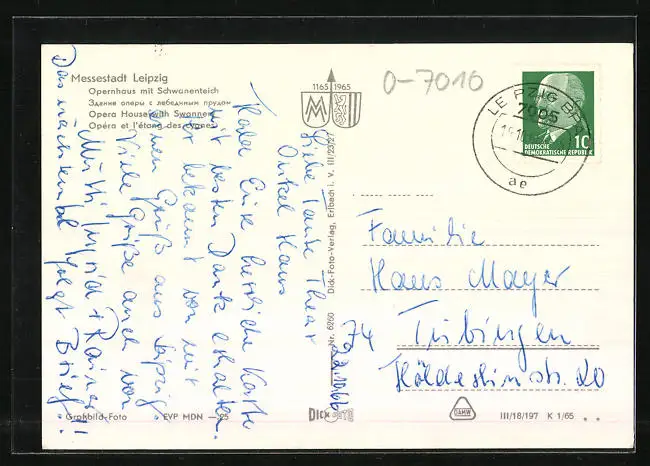 Messestadt Leipzig
Opernhaus mit Schwanenteich
Здание оперы с лебединым прудом
Opera House with Swannery
Opéra et l'étang des cygnes
1165 1965
M
0-7016
LEIPZIG BP
7005
ae
10
DEUTSCHE
DEMOKRATISCHE REPUBLIK
Liebe Tante Thea +
Onkel Hans
Habe Eure herzliche Karte
mit besten Dank erhalten.
Ihr bekommt von mir
einen Gruß aus Leipzig.
Viele Grüße auch von
Mutti, Ingrid + Rainer!!
Das nächste mal folgt Brief!
Familie
Hans Mayer
74 Tübingen
Hölderlinstr. 20
Nr. 6260 Dick-Foto-Verlag, Erlbach i. V. III/23/27
Großbild-Foto EVP MDN —,25
DICK FOTO
DAMW
III/18/197 K 1/65